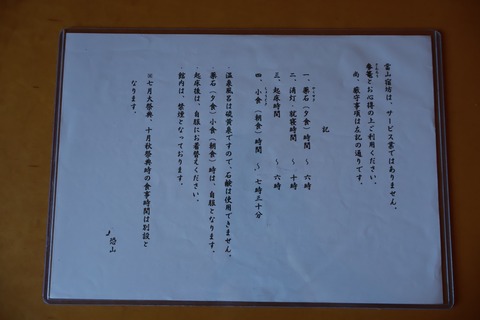 当山宿坊は、サービス業ではありません。
参篭とお心得の上ご利用ください。
尚、厳守事項は左記の通りです。
記
一、薬石(夕食)時間 ~ 六時
二、消灯・就寝時間 ~ 十時
三、起床時間 ~ 六時
四、小食(朝食)時間 ~ 七時三十分
・温泉風呂は硫黄泉ですので、石鹸は使用できません。
・薬石(夕食)小食(朝食)時は、自服となります。
・起床後は、自服にお着替えください。
・館内は、禁煙となっております。
※七月大祭典、十月秋祭典時の食事時間は別設と
なります。
恐山